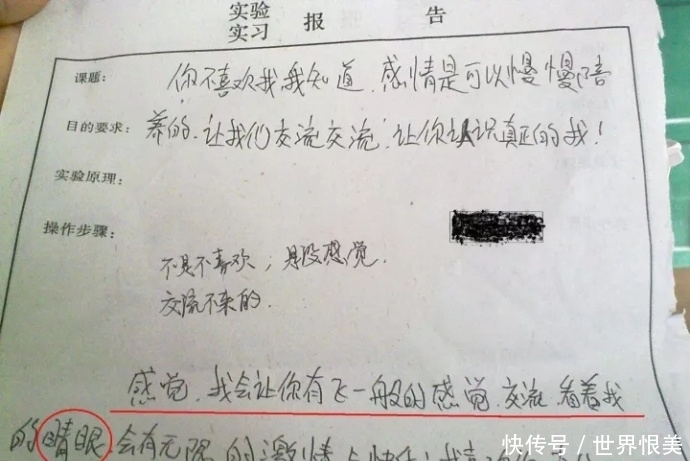 实验
实习 报 告
课题: 你不喜欢我我知道.感情是可以慢慢陪
目的要求: 养的.让我们交流交流.让你认识真正的我!
实验原理:
操作步骤:
不是不喜欢;是没感觉.
交流不来的.
感觉.我会让你有飞一般的感觉.交流.看着我
的晴眼.会有无限的激情与快乐!我
快传号/世界很美